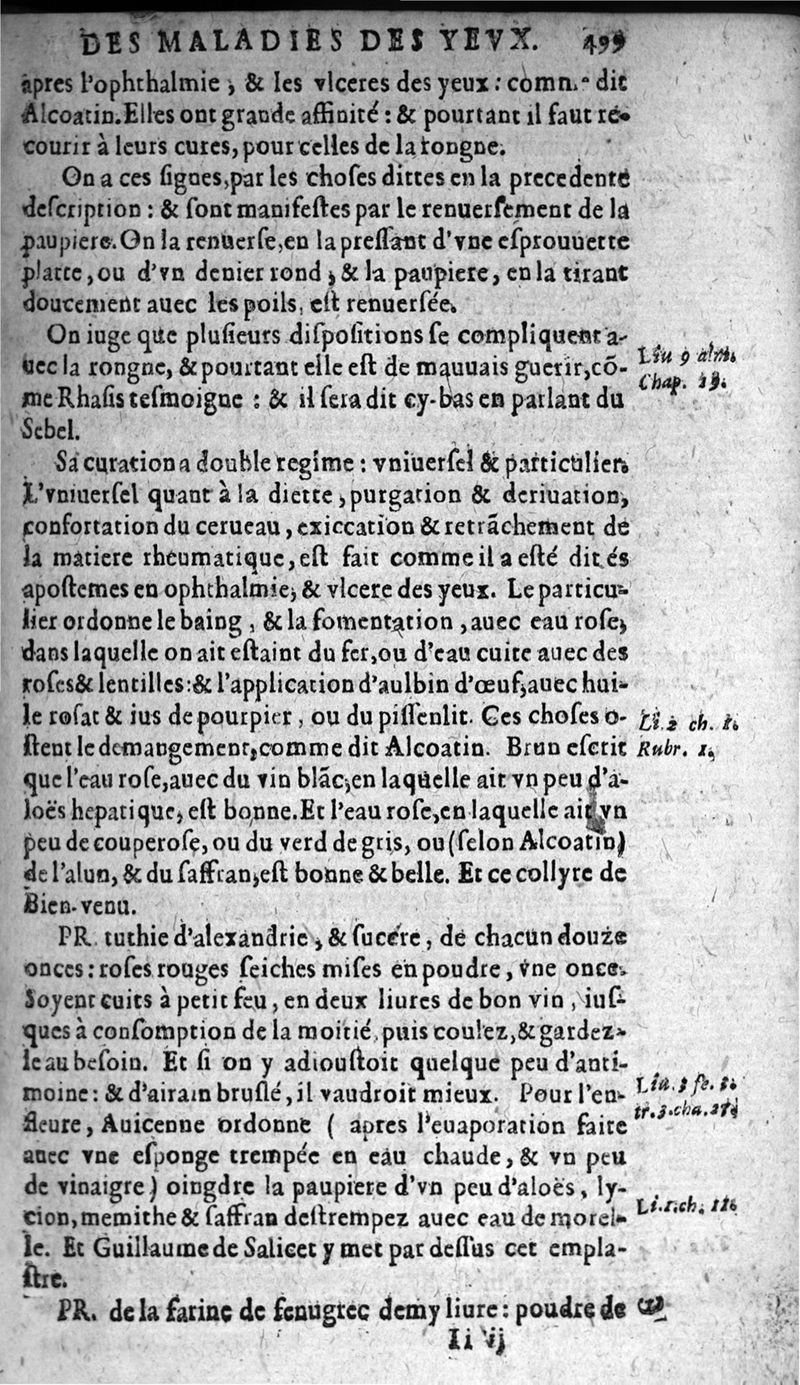 DES MALADIES DES YEVX. 499
apres l'ophthalmie, & les vlceres des yeux: comme dit
Alcoatin. Elles ont grande affinité: & pourtant il faut re-
courir à leurs cures, pour celles de la rongne.
On a ces ſignes, par les choſes dittes en la precedente
deſcription: & ſont manifeſtes par le renuerſement de la
paupiere. On la renuerſe, en la preſſant d'vne eſprouuette
platte, ou d'vn denier rond, & la paupiere, en la tirant
doucement auec les poils, eſt renuerſée.
On iuge que pluſieurs diſpoſitions ſe compliquent a-
uec la rongne, & pourtant elle eſt de mauuais guerir, cõ-
me Rhaſis teſmoigne: & il ſera dit cy-bas en parlant du
Sebel.
Liu 9 alm.
Chap. 19.
Sa curation a double regime: vniuerſel & particulier.
L'vniuerſel quant à la diette, purgation & deriuation,
confortation du cerueau, exiccation & retrãchement de
la matiere rheumatique, eſt fait comme il a eſté dit és
apoſtemes en ophthalmie, & vlcere des yeux. Le particu-
lier ordonne le baing, & la fomentation, auec eau roſe,
dans laquelle on ait eſtaint du fer, ou d'eau cuite auec des
roſes & lentilles: & l'application d'aulbin d'œuf, auec hui-
le roſat & ius de pourpier, ou du piſſenlit. Ces choſes o-
ſtent le demangement, comme dit Alcoatin. Brun eſcrit
que l'eau roſe, auec du vin blãc, en laquelle ait vn peu d'a-
loës hepatique, eſt bonne. Et l'eau roſe, en laquelle ait vn
peu de couperoſe, ou du verd de gris, ou (ſelon Alcoatin)
de l'alun, & du ſaffran, eſt bonne & belle. Et ce collyre de
Bien-venu.
Li. 2 ch. 1.
Rubr. 1.
PR. tuthie d'alexandrie, & ſuccre, de chacun douze
onces: roſes rouges ſeiches miſes en poudre, vne once.
Soyent cuits à petit feu, en deux liures de bon vin, iuſ-
ques à conſomption de la moitié, puis coulez, & gardez-
le au beſoin. Et ſi on y adiouſtoit quelque peu d'anti-
moine: & d'airain bruſlé, il vaudroit mieux. Pour l'en-
fleure, Auicenne ordonne ( apres l'euaporation faite
auec vne eſponge trempée en eau chaude, & vn peu
de vinaigre) oingdre la paupiere d'vn peu d'aloës, ly-
cion, memithe & ſaffran deſtrempez auec eau de morel-
le. Et Guillaume de Salicet y met par deſſus cet empla-
ſtre.
Liu. 3 fe. 3.
tr. 3. cha.
Li. 1. ch. 11.
PR. de la farine de fenugrec demy liure: poudre de
Ii ij